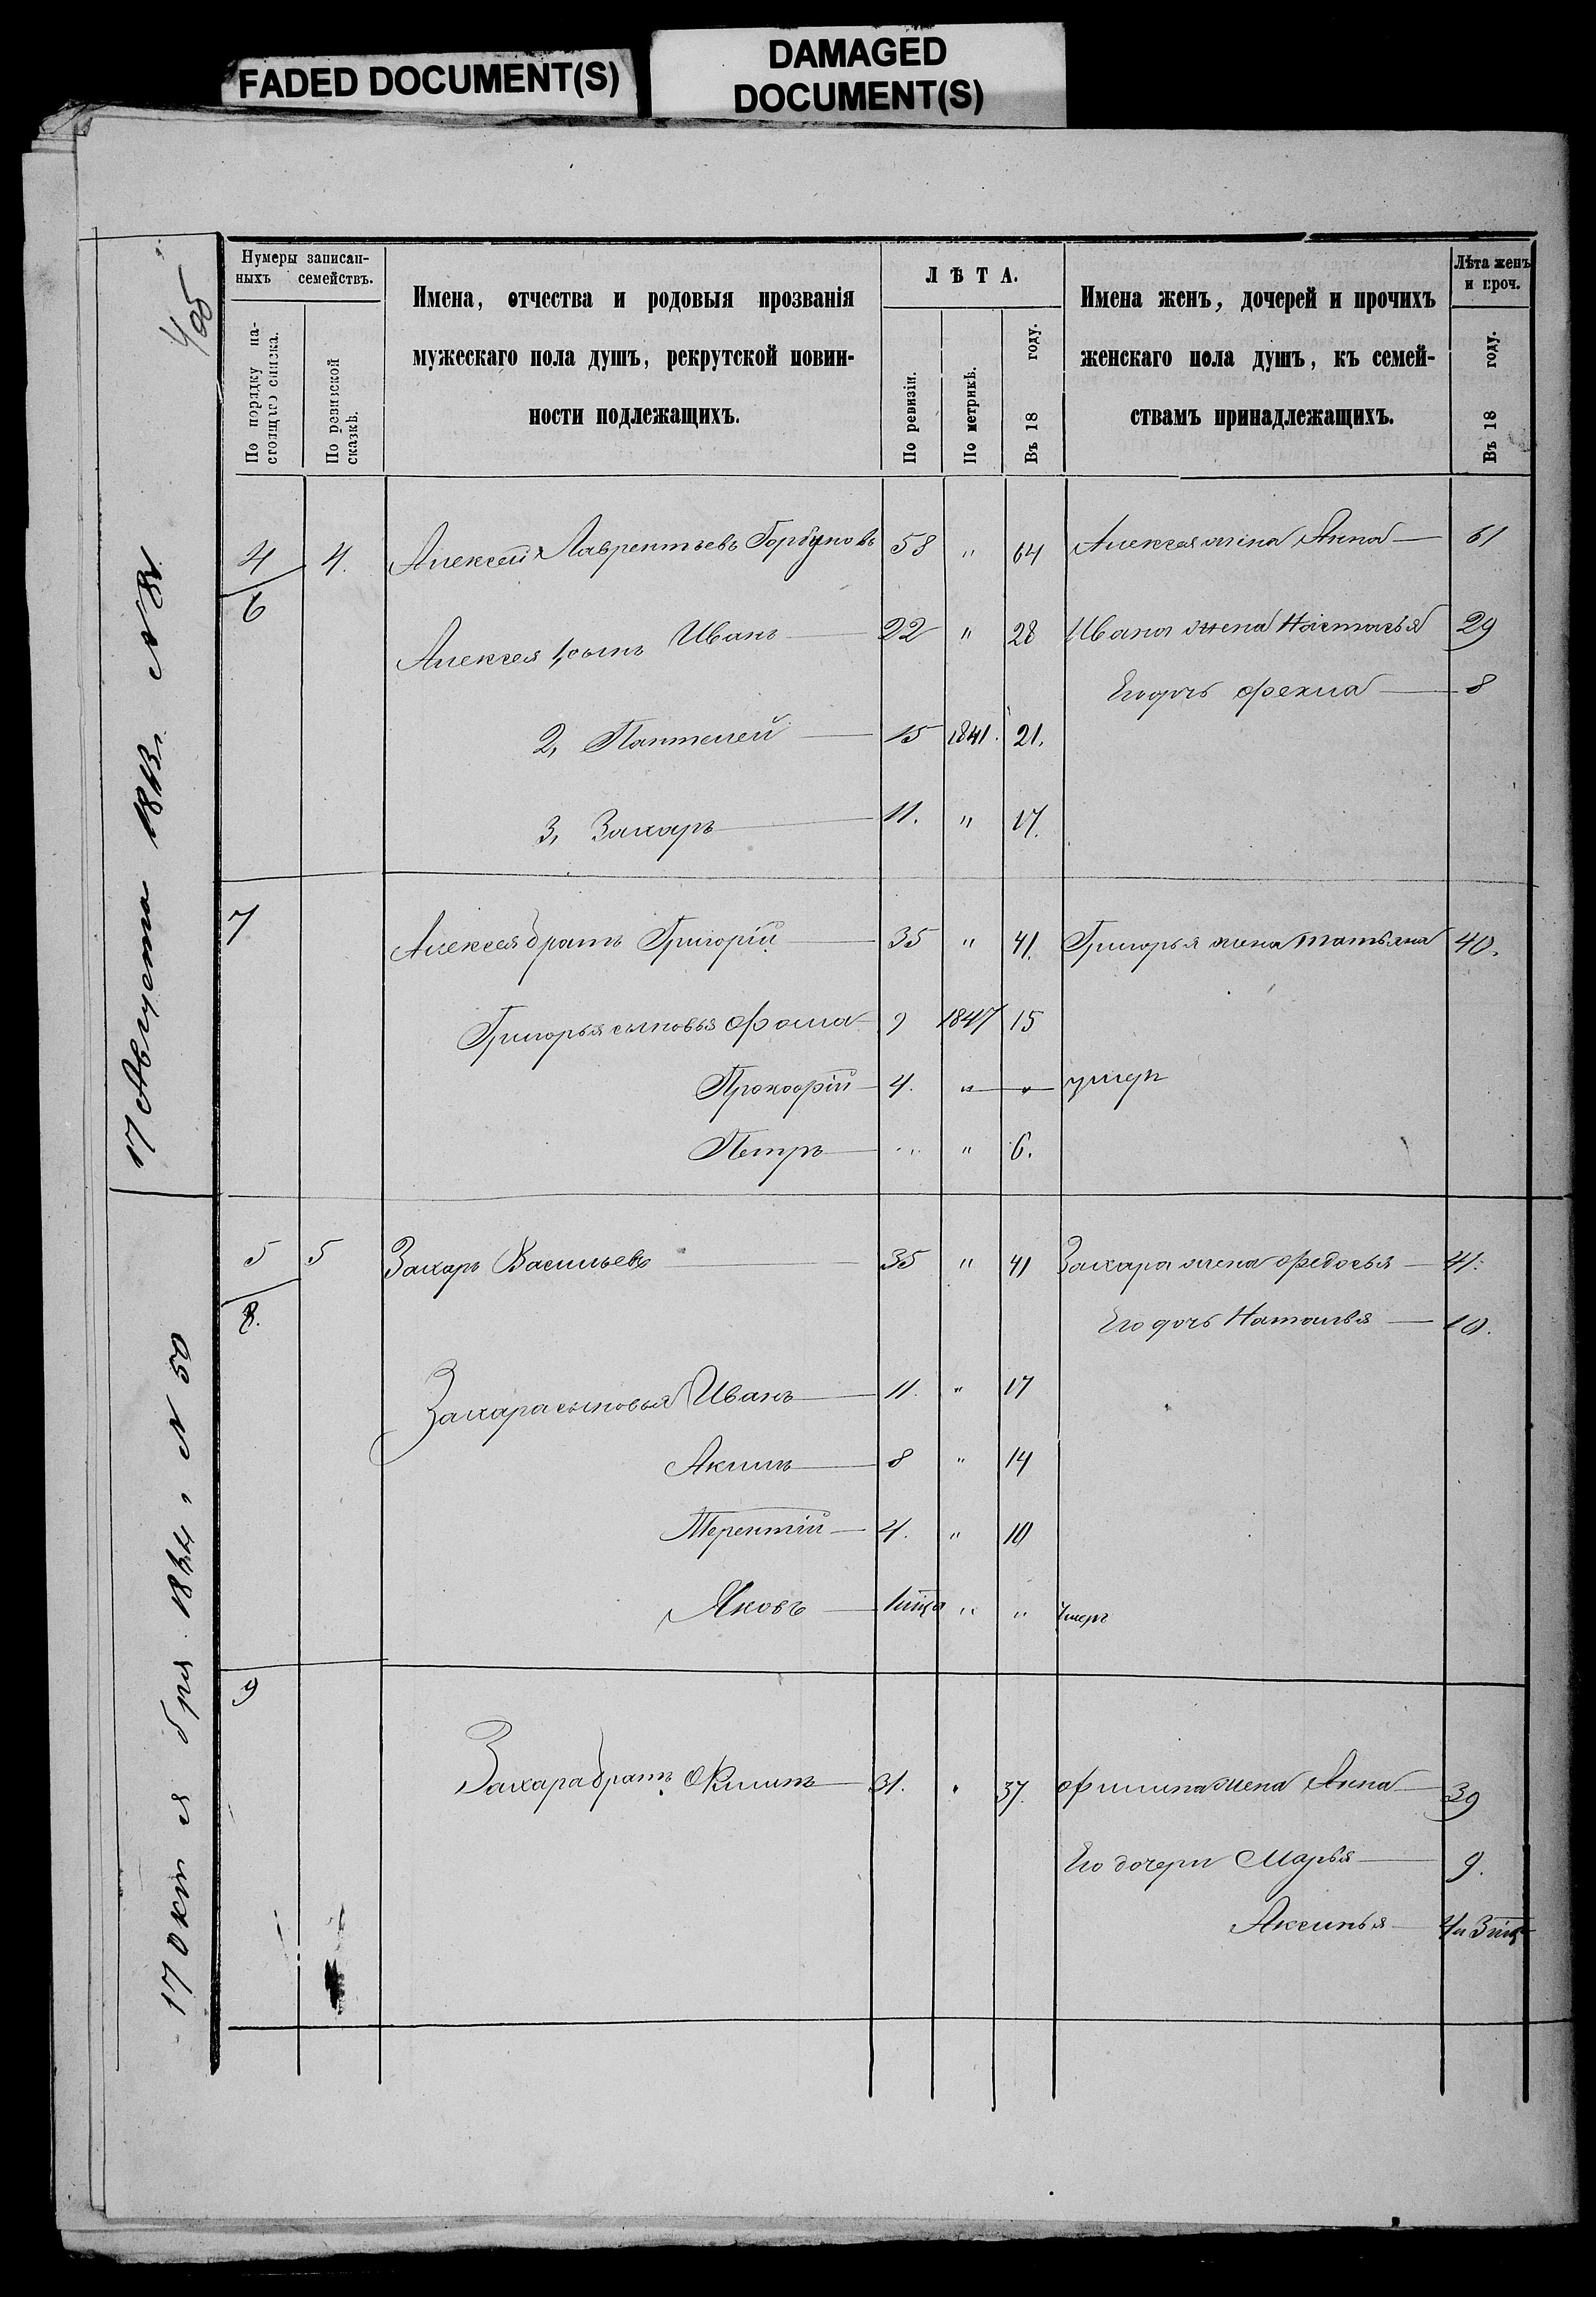 FADED DOCUMENT(S)
DAMAGED
DOCUMENT(S)
405
17 Августа 18 г. №
17 Октября 18 №50
Нумеры записан-
ныхъ семействъ.
По порядку на-
стоящаго списка.
По ревизской
сказкѣ.
Имена, отчества и родовыя прозванія
мужескаго пола душъ, рекрутской повин-
ности подлежащихъ.
ЛѢТА.
По ревизіи.
По метрикѣ.
Въ 18 году.
Имена женъ, дочерей и прочихъ
женскаго пола душъ, къ семей-
ствамъ принадлежащихъ.
Лѣта женъ
и проч.
Въ 18 году.
4 4. Алексей Лаврентьевъ Горбуновъ 58 " 64 Алексея жена Анна 61
6
Алексея 1, сынъ Иванъ 22 " 28 Ивана жена Настасья 29
Его дочь Фекла 8
2, Пантелей 15 1841. 21.
3, Захаръ 11. " 17.
7 Алексея братъ Григорій 35 " 41. Григорья жена Татьяна 40.
Григорья сыновья Фома 9 1847 15
Прокофій 4. " " умеръ
Петръ " " 6.
5 5 Захаръ Васильевъ 35 " 41 Захара жена Федосья 41.
8. Его дочь Наталья 10.
Захара сыновья Иванъ 11. " 17
Акимъ 8 " 14
Терентій 4. " 10
Яковъ " " умеръ
9
Захара братъ Филипъ 31. " 37. Филипа жена Анна 39
Его дочери Марья 9.
Аксинья